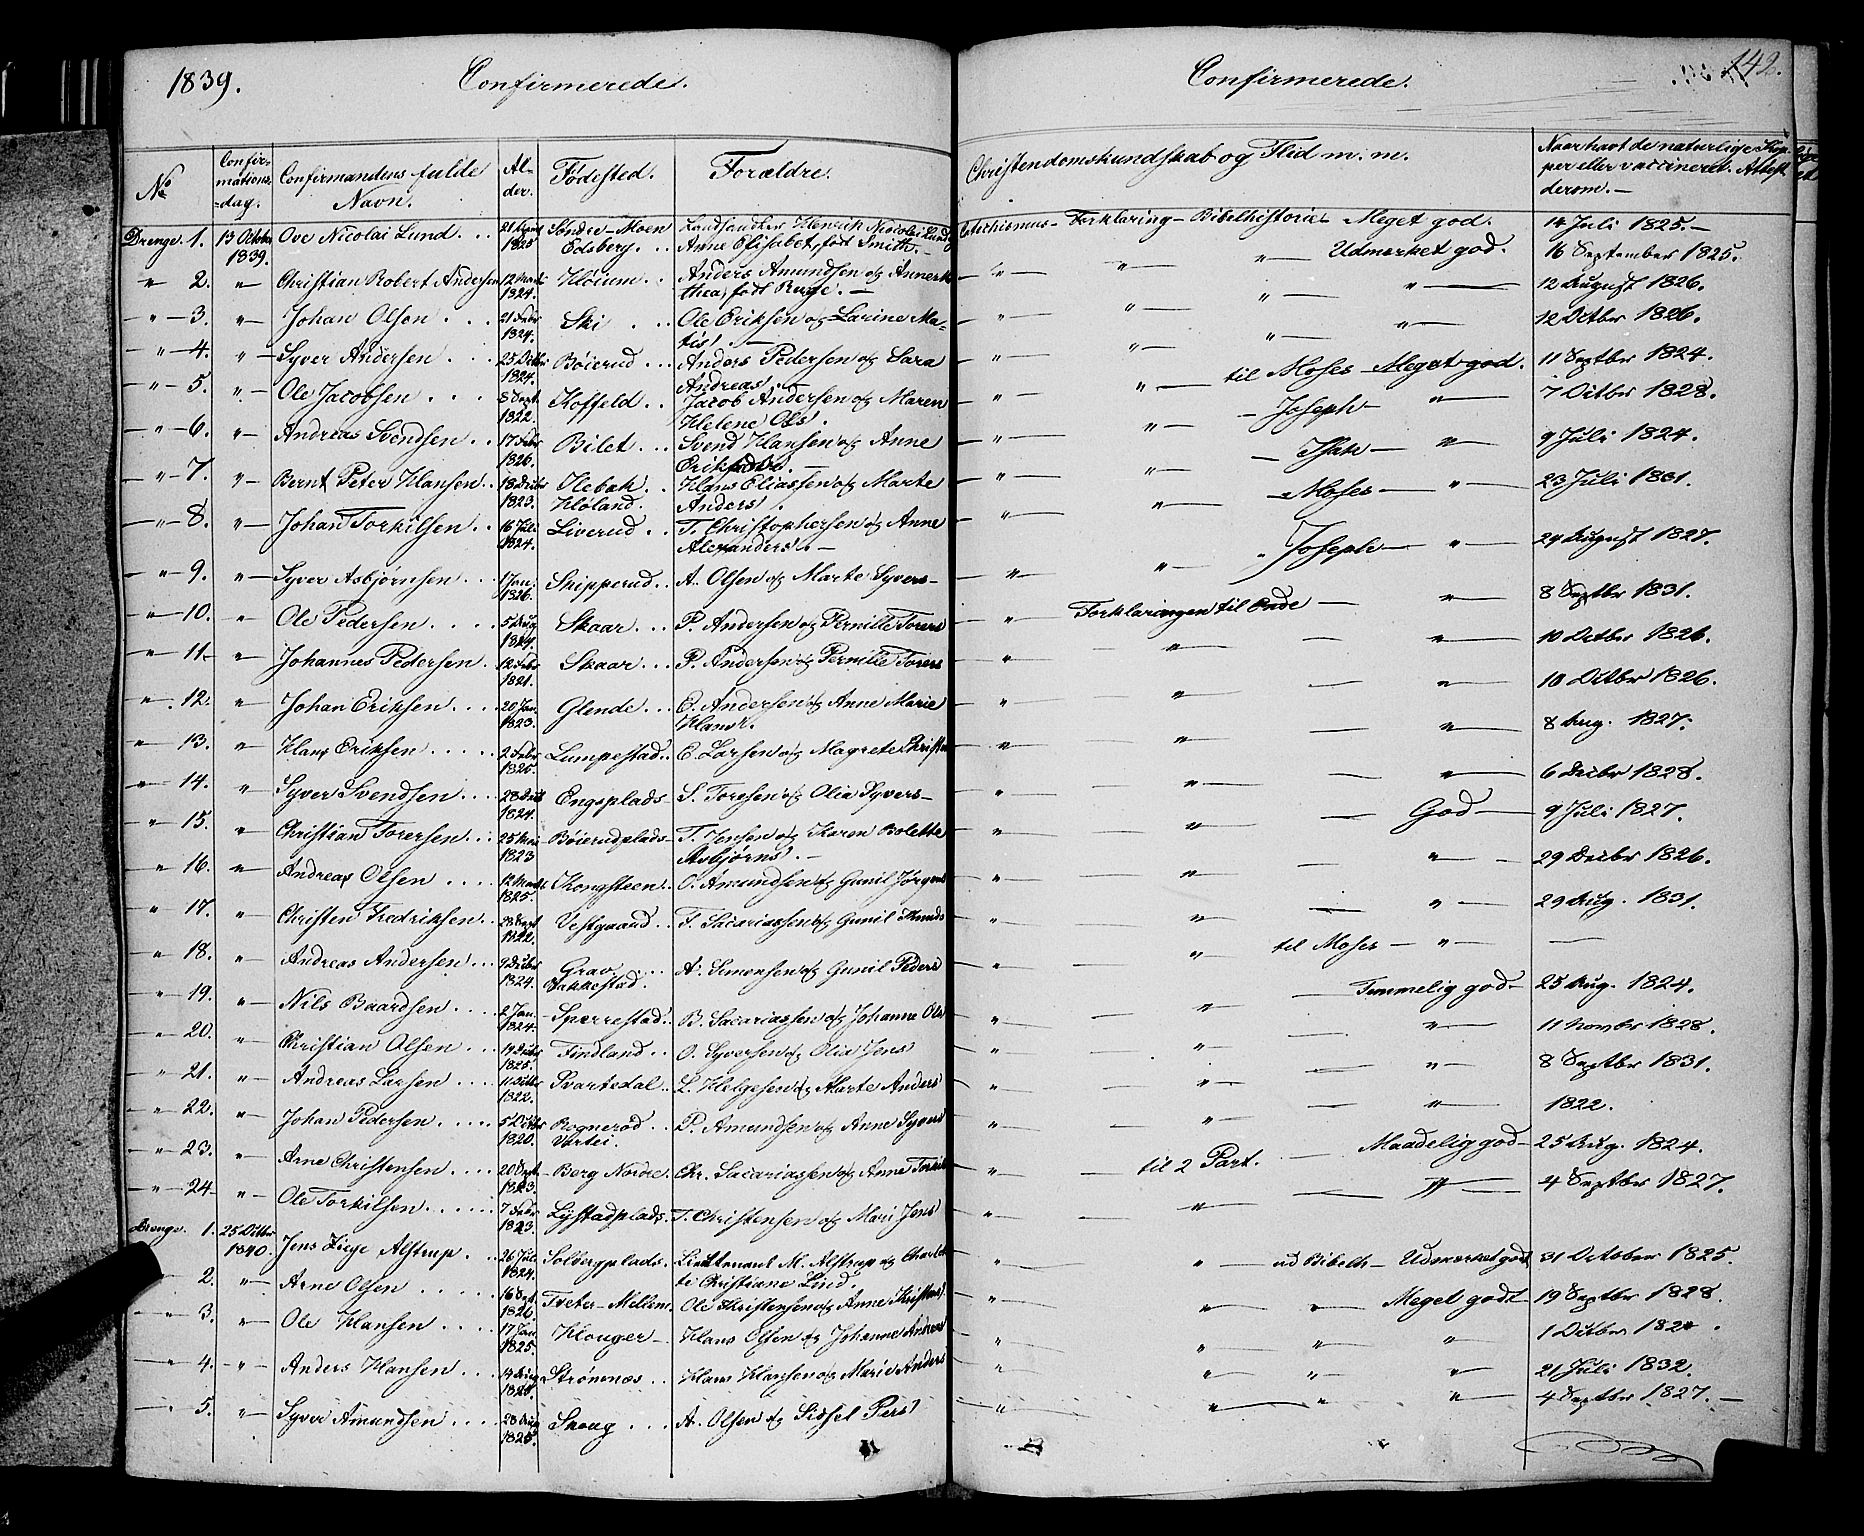 1839. Confirmerede.
No
Confir-
mations-
-dag.
Confirmandens fulde
Navn.
Al-
der.
Fødested.
Forældre.
Drenge. 1. 13 Octobr 1839. Ove Nicolai Lund . . 21 1825 Søndre-Moen Edsberg. . . Landhandler Henrik Nicolai Lund Anne Elisabet, født Smith. -
" 2. " Christian Robert Andersen 12 Marts 1824. Høium . . Anders Amundsen og Annerthea, født Ruge. -
" 3. " Johan Olsen . . . 21 Febr 1824. Ski . . . Ole Eriksen og Larine Ma-
tis!. -
" 4. " Syver Andersen . . . 25 Octbr 1824. Bøierud . . . Anders Pedersen og Sara
Andreas!.
" 5. " Ole Jacobsen . . . 8 Sept. 1822. Koffeld . . Jacob Andersen og Maren
Helene Ols!.
" 6. " Andreas Svendsen . . 17 Febr 1826. Bilet . . . Svend Hansen og Anne
" 7. " Bernt Peter Hansen . . 18 Decbr 1823. Ilebak . . Høland. Hans Eliassen og Marte
Anders!.
" 8. " Johan Torkilsen . . 16 Juli 1824. Liverud . . T. Christophersen og Anne
Alexanders!. -
" 9. " Syver Asbjørnsen . . . 1 Jan. 1826. Skipperud . . A. Olsen og Marte Syvers-
" 10. " Ole Pedersen . . . . 5 Aug 1824. Skaar . . . P. Andersen og Pernille Torers
" 11. " Johannes Pedersen . 12 Febr 1821. Skaar . . . P. Andersen og Pernille Torers
" 12. " Johan Eriksen . . . . 20 Jan. 1823. Glende . . . E. Andersen og Anne Marie
Hans!.
" 13. " Hans Eriksen . . . . . 2 Febr 1825. Lumpestad . . E. Larsen og Magrete Christ
" 14. " Syver Svendsen . . . . 28 1824. Engsplads- S. Toresen og Olia Syvers-
" 15. " Christian Torersen . . . 25 Mai 1823 Bøierudplads- T. Jensen og Karen Bolette
Asbjørns!. -
" 16. " Andreas Olsen . . . . 12 Marts 1825. Kongsteen . . O. Amundsen og Gunil Jørgens
" 17. " Christen Fredriksen . . 28 Sept 1822. Vestgaard . . F. Sacariassen og Gunil Amunds
" 18. " Andreas Andersen . . . 9 Decbr 1824. Grav . . . Vakkestad. A. Simonsen og Gunil Peders
" 19. " Nils Baardsen . . . . 2 Jan. 1824. Sperrestad . . B. Sacariassen og Johanne Ols
" 20. " Christian Olsen . . . . 19 Decbr 1825. Findland . . O. Syversen og Olia Jens
" 21. " Andreas Larsen . . . . 11 Octbr 1822. Svartedal . . L. Helgesen og Marte Anders
" 22. " Johan Pedersen . . . . 5 1820. Rognerød . . P. Amundsen og Anne Syvers
" 23. " Arne Christensen . . . . 20 Sept 1823. Berg Nordre. Chr. Sacariassen og Anne Torkils
" 24 " Ole Torkilsen . . . . . . 7 Febr 1823 Lystadplads. T. Christensen og Mari Jens!
Drenge. 1. 25 Octbr 1840. Jens Alstrup . . . 26 Juli 1824. Solbergplads . Lieutenant M. Alstrup og Charlot-
te Christiane Lind.
2. " Arne Olsen . . . . . 16 Sept. 1826. Tveter-Mellem. Ole Christensen og Anne Christens!
" 3. " Ole Hansen . . . . 17 Jan. 1825. Klouger- Hans Olsen og Johanne Andreas
" 4. " Anders Hansen . . . 14 Aug 1825. Strønenæs . . Hans Hansen og Marie Anders
" 5. " Syver Amundsen . . . . 28 1825. Skoug . . . A. Olsen og Sidsel Pers!
Confirmerede. 142.
Christendomskundskab og Flid m. m.
Naar havt de naturlige Kop-
per eller vaccineret. Attest
derom. -
Catechismus - Forklaring - Bibelhistorie - Meget god. 14 Juli 1825. -
" " " Udmærket god. 16 September 1825.
" " " " 12 August 1826.
" " " " 12 Octbr 1826.
" " " til Moses - Meget god. 11 Septbr 1824.
" " - Joseph - " 7 Octbr 1828.
" " - Isak - " 9 Juli 1824.
" " - Moses - " 23 Juli 1831.
" " - Joseph - " 24 August 1827.
" " Forklaringen til Ende - " 8 Septbr 1831.
" " - " 10 Octbr 1826.
" " - " 10 Octbr 1826.
" " - " 8 Aug. 1827.
" " - " 6 Decbr 1828.
" " - God - 9 Juli 1827.
" " - " 29 Decbr 1826.
" " - " 29 Aug. 1831.
" " til Moses - " -
" " - Temmelig god - 25 Aug. 1824.
" " - " 11 Novbr 1828.
" " - " 8 Septbr 1831.
" " - " 1822.
" - til 2 Part. - Maadelig god - 25 Aug. 1824.
" - " - " 4 Septbr 1827.
" " ud Bibelh - Udmærket god 31 October 1825.
" " " Meget godt 19 Septbr 1828.
" " " " 1 Octbr 182
" " " " 21 Juli 1832.
" " " " 4 Septbr 1827. -